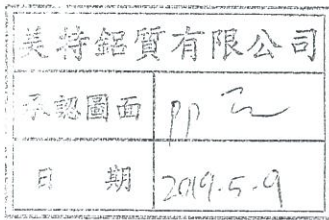 美特鋁質有限公司
承認圖面
日期 2019.5.9